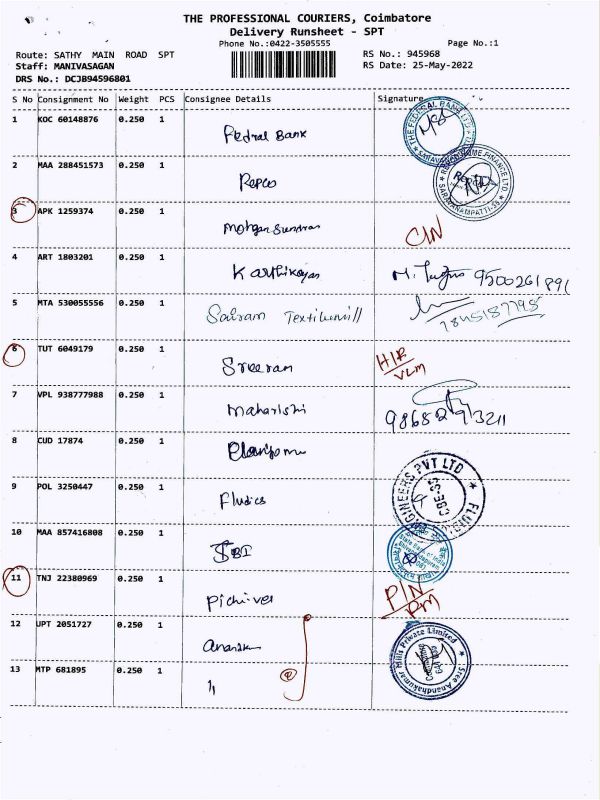 THE PROFESSIONAL COURIERS, Coimbatore
Delivery Runsheet - SPT
Phone No.:0422-3505555
Page No.:1
Route: SATHY MAIN ROAD SPT
RS No.: 945968
Staff: MANIVASAGAN
RS Date: 25-May-2022
DRS No.: DCJB94596801
S No Consignment No Weight PCS Consignee Details Signature
1 KOC 60148876 0.250 1 Fedral Bank
THE FEDERAL BANK LTD
2 MAA 288451573 0.250 1 Repco
REPCO HOME FINANCE LTD. SARAVANAMPATTI-35
3 APK 1259374 0.250 1 Mohgan Sundran CIN
4 ART 1803201 0.250 1 Karthikayan M. 9500261891
5 MTA 530055556 0.250 1 Sairam Textilemill 7845187795
6 TUT 6049179 0.250 1 Sreeram HIR
VLM
7 VPL 938777988 0.250 1 Maharishi 9865293211
8 CUD 17874 0.250 1
9 POL 3250447 0.250 1 Fludics
ENGINEERS PVT LTD CBE-35
10 MAA 857416808 0.250 1 SBI
State Bank of India
11 TNJ 22380969 0.250 1 Pichives PIN
RM
12 UPT 2051727 0.250 1
Sree Anandhakumar Mills Private Limited
13 MTP 681895 0.250 1 11